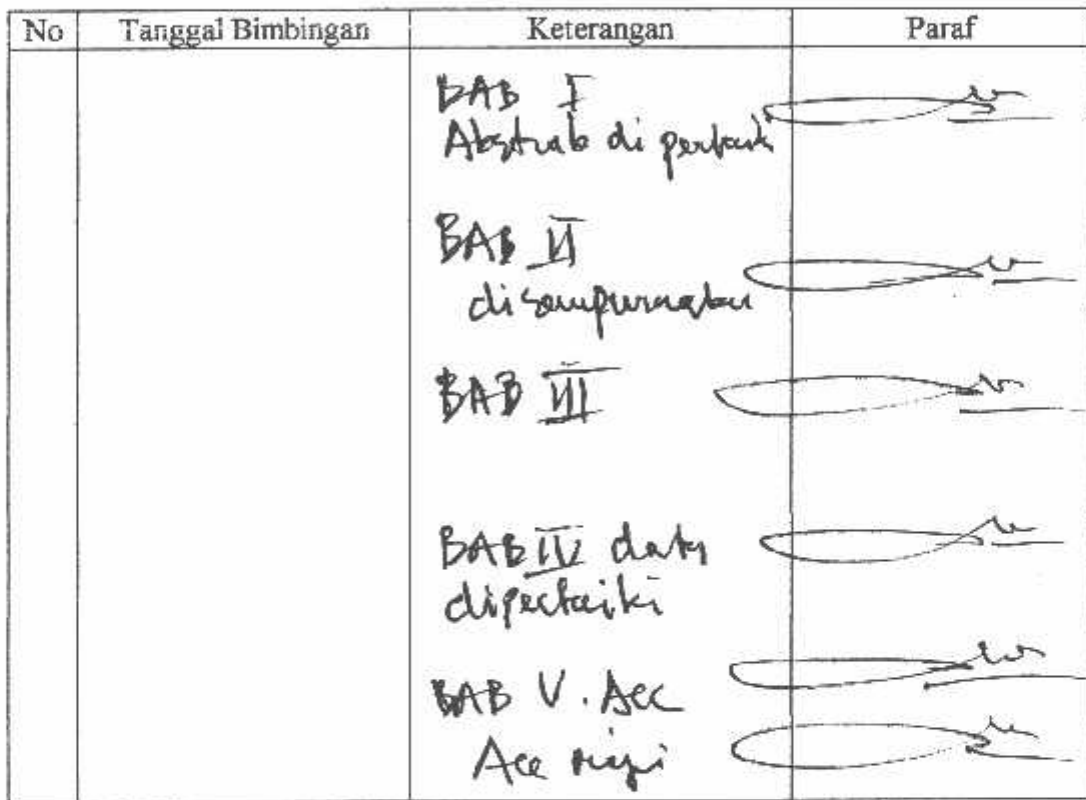 No Tanggal Bimbingan Keterangan Paraf
BAB I
Abstrak di perbaiki
BAB II
disempurnakan
BAB III
BAB IV data
diperbaiki
BAB V. Acc
Acc